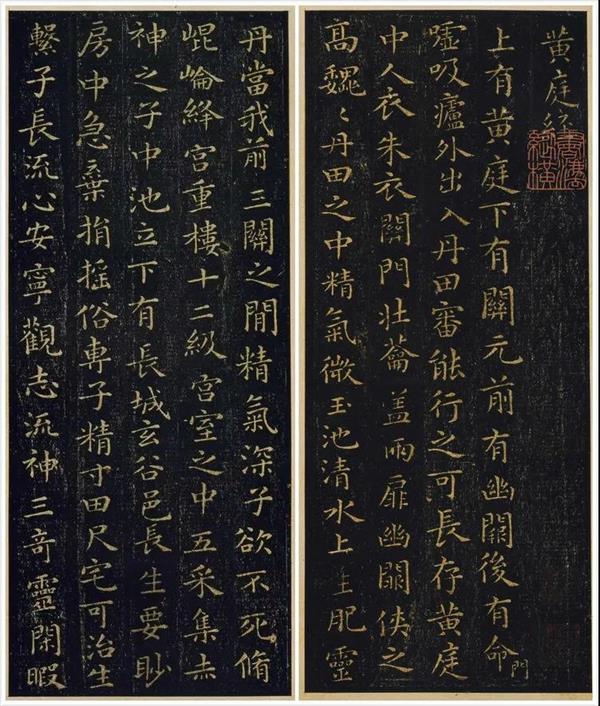 黄庭經
上有黄庭下有關元前有幽闕後有命門
嘘吸廬外出入丹田審能行之可長存黄庭
中人衣朱衣關門壯蘥盖兩扉幽闕侠之
高魏〻丹田之中精氣微玉池清水上生肥靈
丹當我前三關之間精氣深子欲不死脩
崐崘絳宫重樓十二級宫室之中五采集赤
神之子中池立下有長城玄谷邑長生要眇
房中急棄捐揺俗専子精寸田尺宅可治生
繫子長流心安寧觀志流神三奇靈閑暇